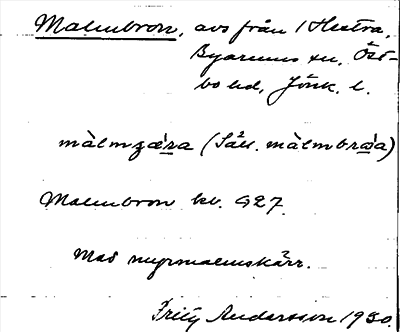 Malmbron, avs från 1 Hestra,
Byarums sn, Öst-
bo hd, Jönk. l.
màlmgæ̀ra (Säll. màlmbræ̀a)
Malmbron kv. G27.
Mad myrmalmskärr.
Fritz Andersson 1930.